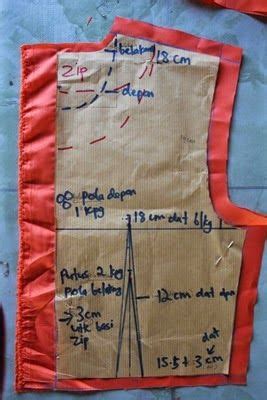 belakang
18 cm
Zip
depan
pola depan
1 kpg
18 cm dat blkg
Putus 2 kpg
pola belakang
→ 3cm
utk basi
zip
12 cm dat dpn
dat
15.5 + 3 cm